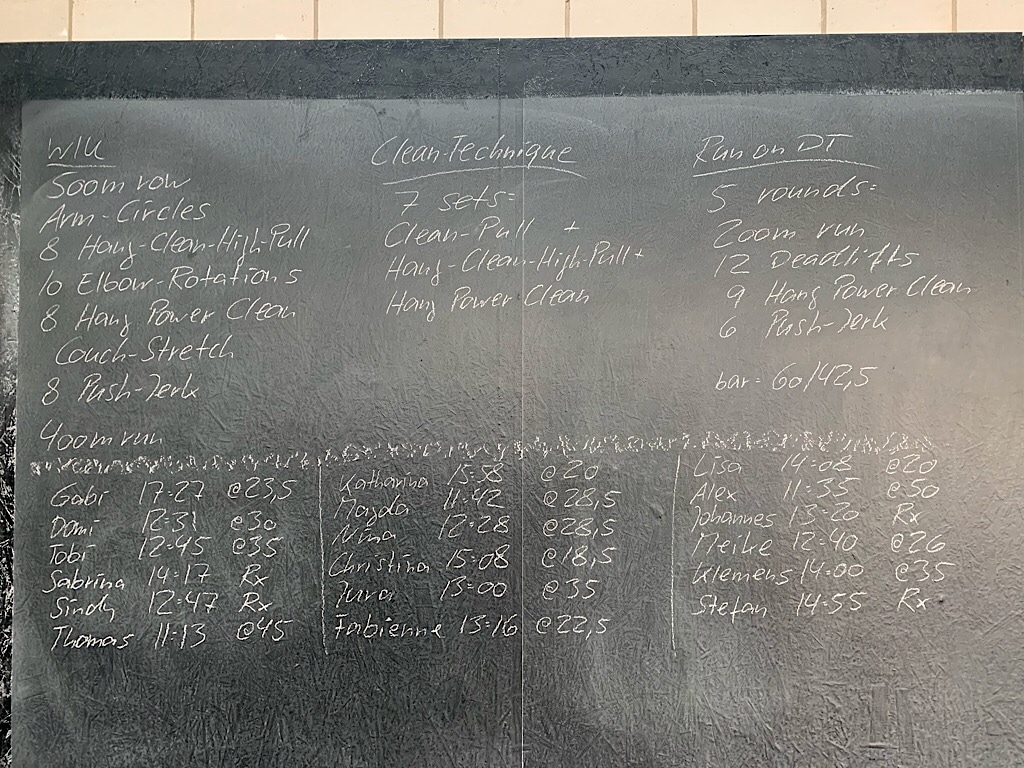 W/U
500m row
Arm-Circles
8 Hang-Clean-High-Pull
10 Elbow-Rotations
8 Hang Power Clean
Couch-Stretch
8 Push-Jerk
400m run
Clean-Technique
7 sets:
Clean-Pull +
Hang-Clean-High-Pull+
Hang Power Clean
Run on DT
5 rounds:
200m run
12 Deadlifts
9 Hang Power Clean
6 Push-Jerk
bar: 60/42,5
Gabi 17:27 @23,5
Domi 12:31 @30
Tobi 12:45 @35
Sabrina 14:17 Rx
Sindy 12:47 Rx
Thomas 11:13 @45
Katharina 15:58 @20
Magda 11:42 @28,5
Nina 12:28 @28,5
Christina 15:08 @18,5
13:00 @35
Fabienne 13:16 @22,5
Lisa 14:08 @20
Alex 11:35 @50
Johannes 13:20 Rx
Meike 12:40 @26
Klemens 14:00 @35
Stefan 14:55 Rx